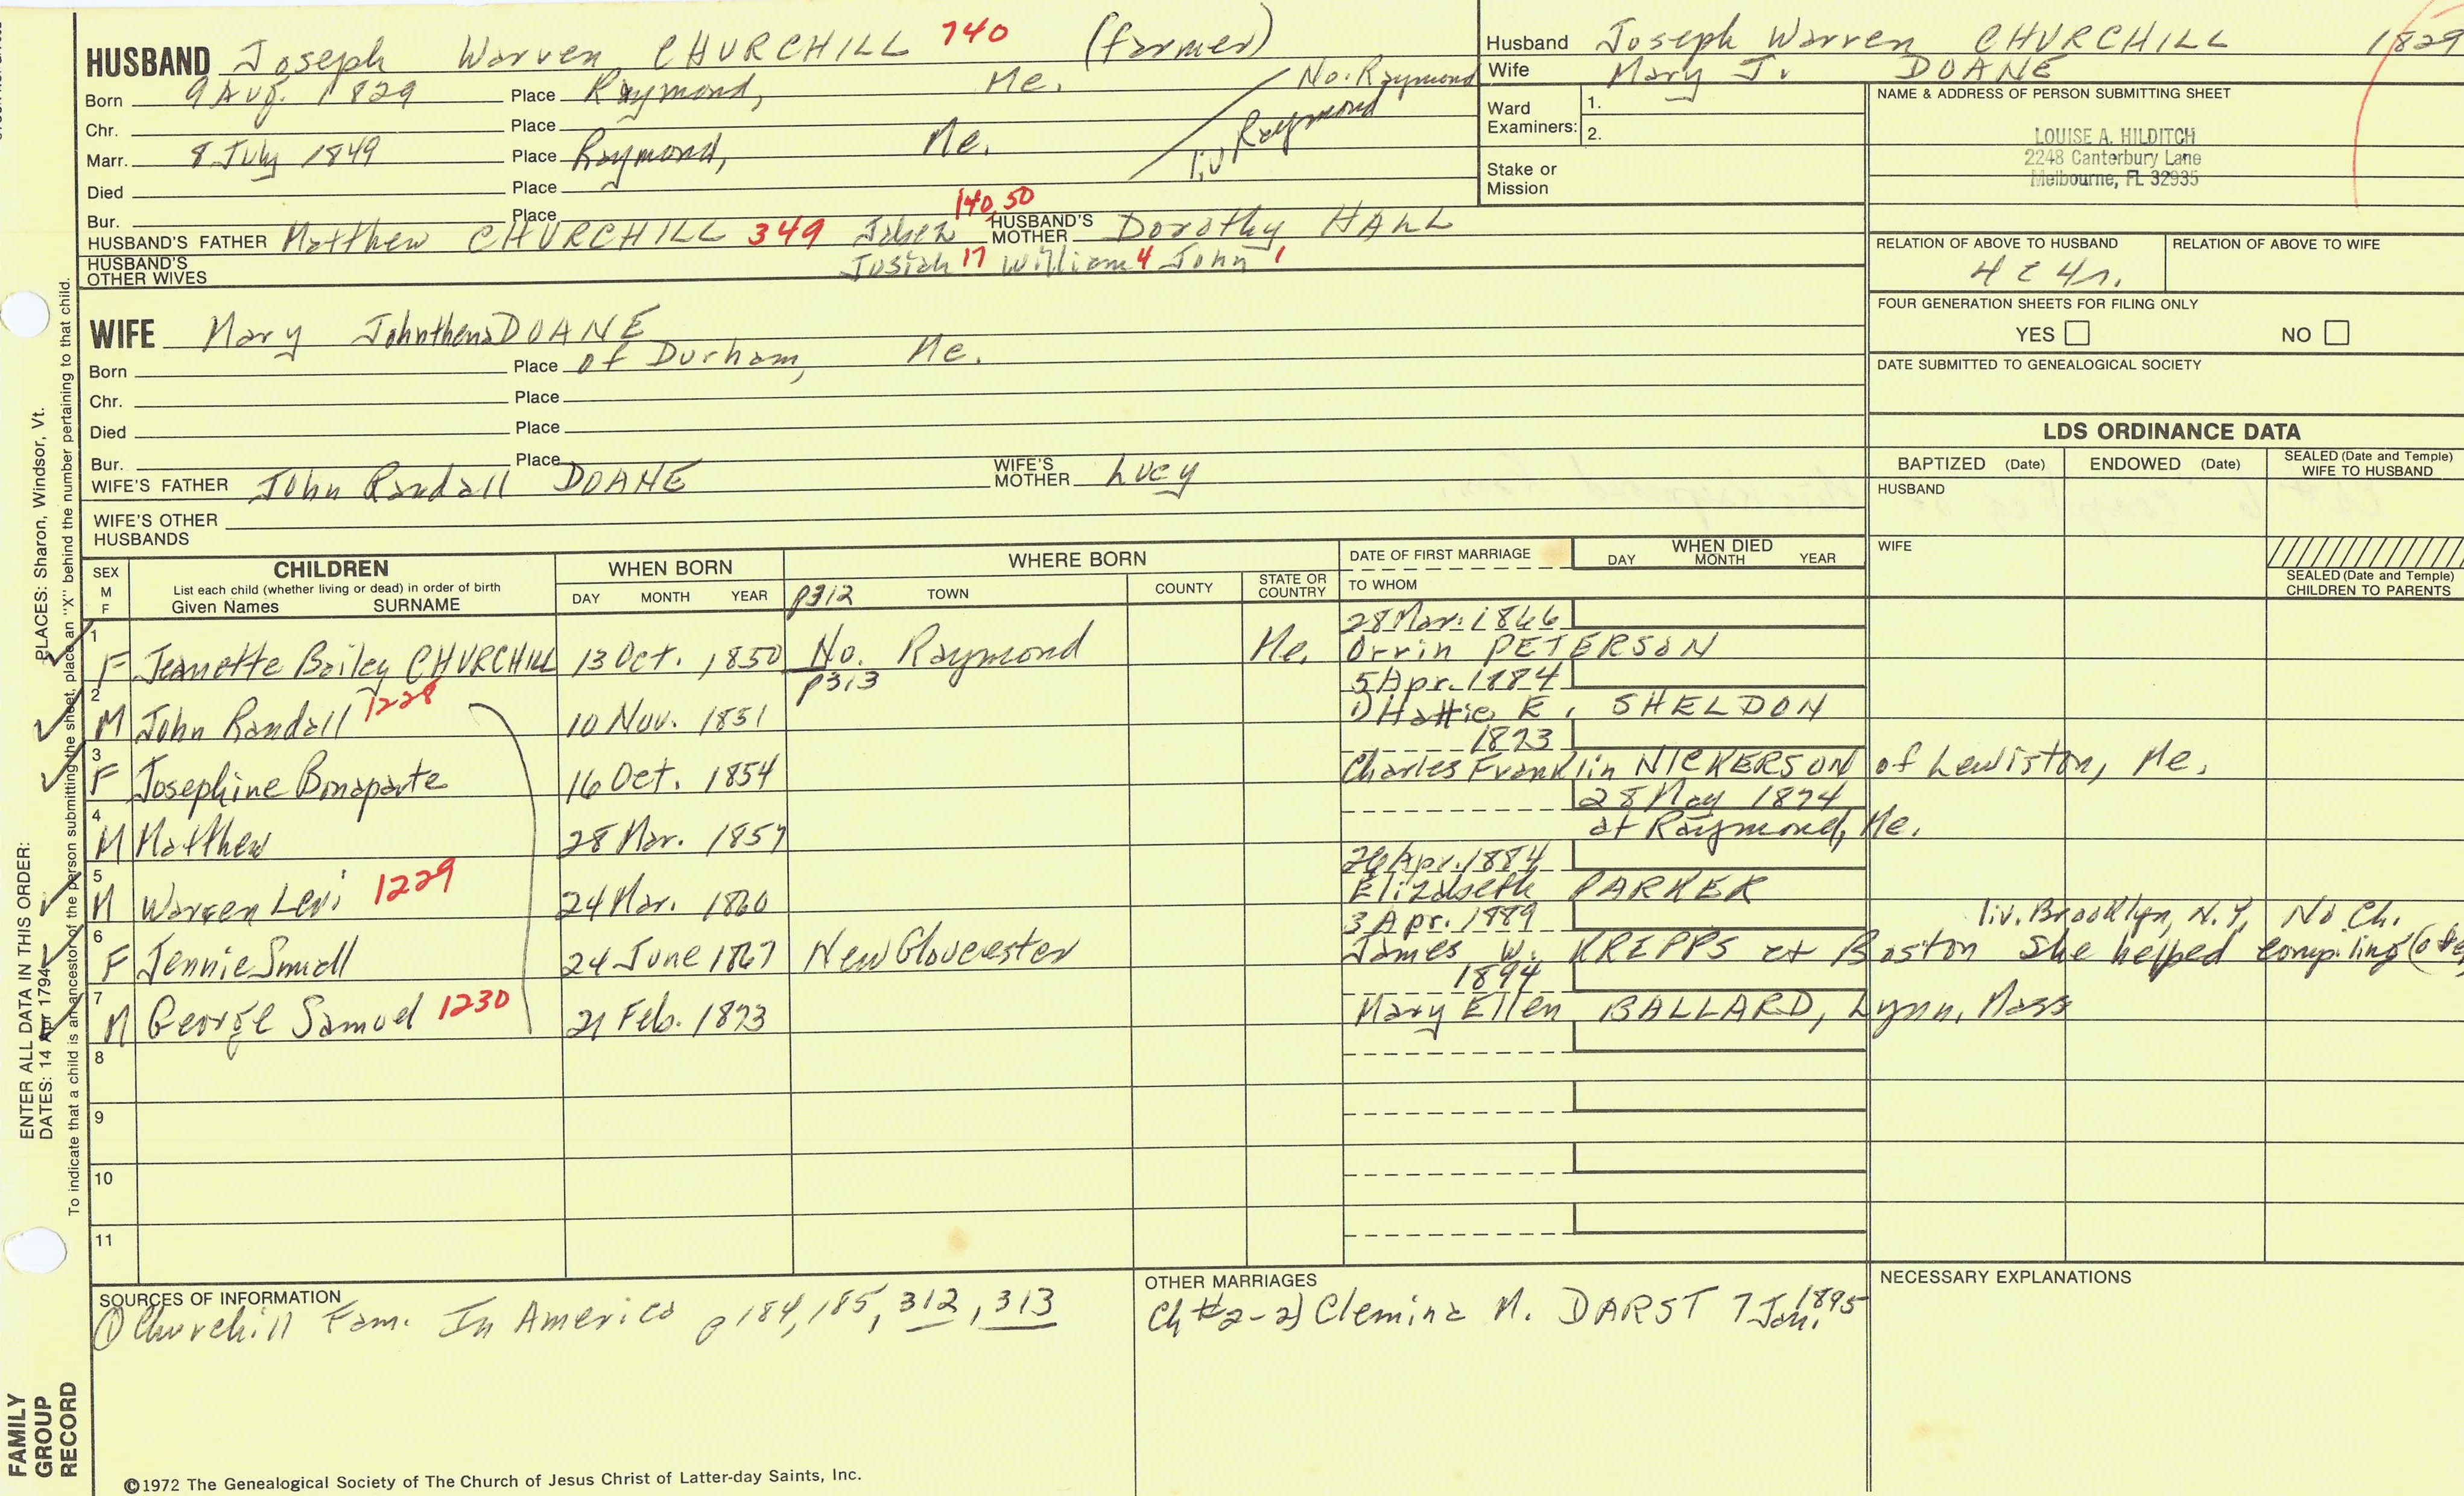 HUSBAND Joseph Warren CHURCHILL 740 (farmer)
Born 9 Aug. 1829 Place Raymond, Me. No. Raymond
Chr. Place
Marr. 8 July 1849 Place Raymond, Me. liv Raymond
Died Place
Bur. Place
140, 50
HUSBAND'S FATHER Matthew CHURCHILL 349 HUSBAND'S MOTHER Dorothy HALL
HUSBAND'S OTHER WIVES
Josiah 17 William 4 John 1
Husband Joseph Warren CHURCHILL 1829
Wife Mary J. DOANE
Ward Examiners: 1.
2.
Stake or Mission
NAME & ADDRESS OF PERSON SUBMITTING SHEET
LOUISE A. HILDITCH
2248 Canterbury Lane
Melbourne, FL 32935
RELATION OF ABOVE TO HUSBAND RELATION OF ABOVE TO WIFE
4 c 4 r.
FOUR GENERATION SHEETS FOR FILING ONLY
YES NO
DATE SUBMITTED TO GENEALOGICAL SOCIETY
WIFE Mary Johnthena DOANE
Born Place of Durham, Me.
Chr. Place
Died Place
Bur. Place
WIFE'S FATHER John Randall DOANE WIFE'S MOTHER Lucy
WIFE'S OTHER HUSBANDS
LDS ORDINANCE DATA
BAPTIZED (Date) ENDOWED (Date) SEALED (Date and Temple) WIFE TO HUSBAND
HUSBAND
WIFE
SEALED (Date and Temple) CHILDREN TO PARENTS
SEX M F CHILDREN List each child (whether living or dead) in order of birth Given Names SURNAME
WHEN BORN DAY MONTH YEAR
WHERE BORN p312 TOWN COUNTY STATE OR COUNTRY
DATE OF FIRST MARRIAGE TO WHOM
WHEN DIED DAY MONTH YEAR
28 Mar. 1866
1 F Jeanette Bailey CHURCHILL 13 Oct. 1850 No. Raymond Me. Orrin PETERSON
p313 5 Apr. 1884
2 M John Randall 1228 10 Nov. 1851 1) Hattie E. SHELDON
1873
3 F Josephine Bonaparte 16 Oct. 1854 Charles Franklin NICKERSON of Lewiston, Me.
28 May 1874
4 M Matthew 28 Mar. 1857 at Raymond, Me.
26 Apr. 1884
5 M Warren Levi 1229 24 Mar. 1860 Elizabeth PARKER
3 Apr. 1889 liv. Brooklyn, N.Y. No Ch.
6 F Jennie Small 24 June 1867 New Gloucester James W. KREPPS at Boston She helped compiling
1894
7 M George Samuel 1230 21 Feb. 1873 Mary Ellen BALLARD, Lynn, Mass
8
9
10
11
SOURCES OF INFORMATION
① Churchill Fam. In America p 184, 185, 312, 313
OTHER MARRIAGES
Ch #2-2) Clemina M. DARST 7 Jan. 1895
NECESSARY EXPLANATIONS
©1972 The Genealogical Society of The Church of Jesus Christ of Latter-day Saints, Inc.
ENTER ALL DATA IN THIS ORDER:
DATES: 14 Apr 1794
PLACES: Sharon, Windsor, Vt.
To indicate that a child is an ancestor of the person submitting the sheet, place an "X" behind the number pertaining to that child.
FAMILY GROUP RECORD